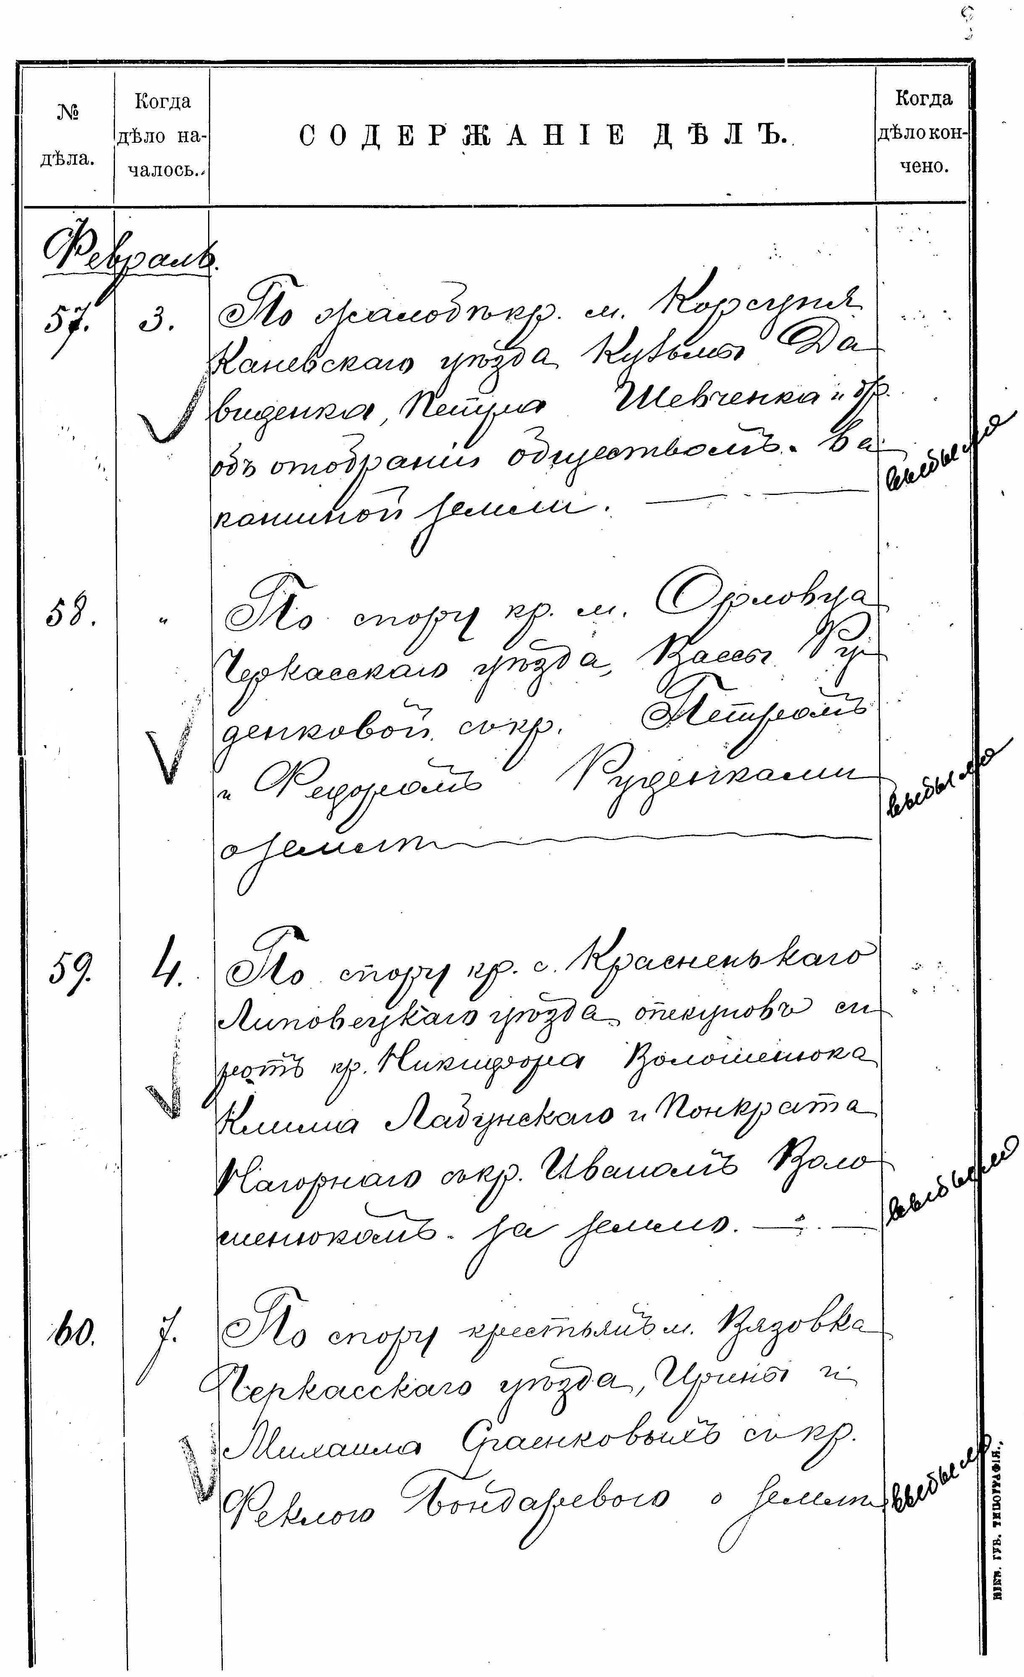 № дѣла.
Когда дѣло на-чалось.
СОДЕРЖАНІЕ ДѢЛЪ.
Когда дѣло кон-чено.
Февраль.
57. 3. По жалобѣ кр. м. Корсуня
Каневскаго уѣзда Кузьмы Да
виденка, Петра Шевченка и др.
объ отобраніи обществомъ ва
кантной земли. выбыло
58. " По спору кр. м. Орловца
Черкасскаго уѣзда, Вассы Ру
денковой съ кр. Петромъ
и Федоромъ Руденками
о землѣ выбыло
59. 4. По спору кр. с. Красненькаго
Липовецкаго уѣзда опекуновъ си
ротъ кр. Никифора Волошенюка
Клима Лабунскаго и Понкрата
Нагорнаго съ кр. Иваномъ Воло
шенюкомъ за землю. выбыло
60. 7. По спору крестьянъ м. Вязовка
Черкасскаго уѣзда, Ирины и
Михаила съ кр.
Феклою Бондаревою о землѣ выбыло
КІЕВ. ГУБ. ТИПОГРАФІЯ.